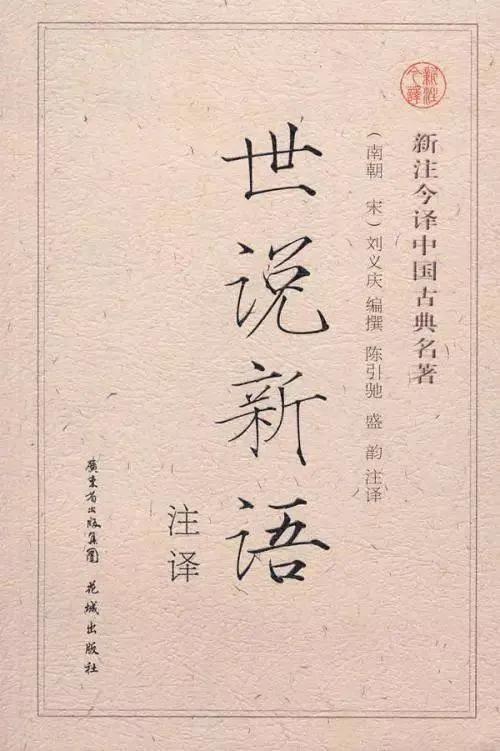 新注今译
新注今译中国古典名著
（南朝　宋）刘义庆 编撰 陈引驰 盛　韵 注译
世说新语
注译
廣東省出版集團 花城出版社